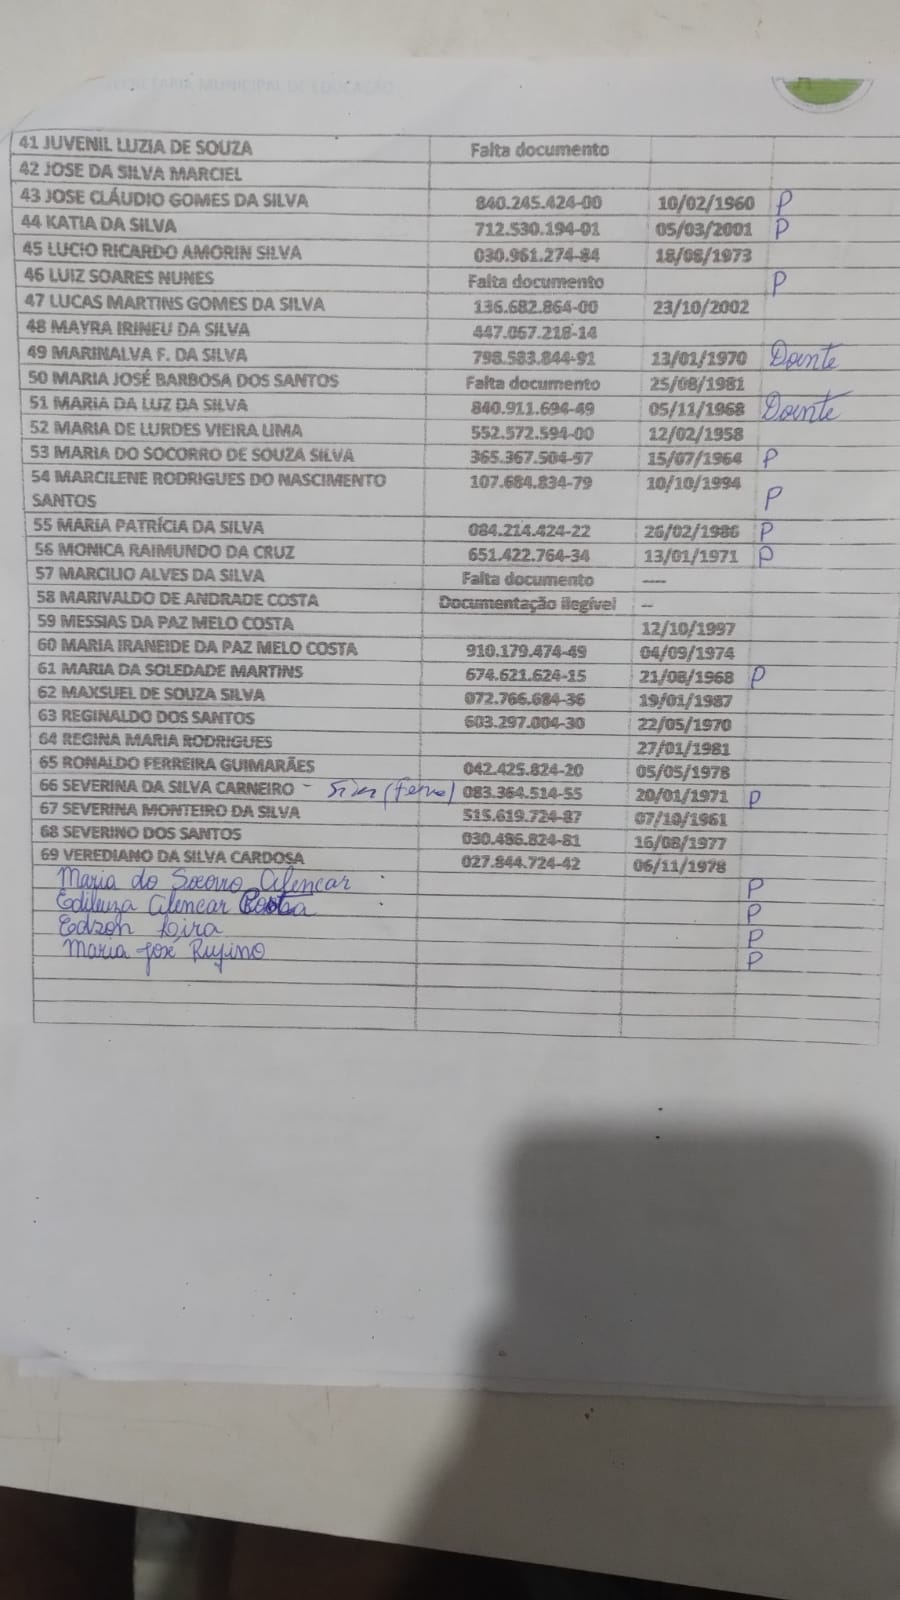 SECRETARIA MUNICIPAL DE EDUCAÇÃO
41 JUVENIL LUZIA DE SOUZA Falta documento
42 JOSE DA SILVA MARCIEL
43 JOSE CLÁUDIO GOMES DA SILVA 840.245.424-00 10/02/1960 P
44 KATIA DA SILVA 712.530.194-01 05/03/2001 P
45 LUCIO RICARDO AMORIN SILVA 030.961.274-84 18/08/1973
46 LUIZ SOARES NUNES Falta documento P
47 LUCAS MARTINS GOMES DA SILVA 136.682.864-00 23/10/2002
48 MAYRA IRINEU DA SILVA 447.067.218-14
49 MARINALVA F. DA SILVA 798.583.844-91 13/01/1970 Doente
50 MARIA JOSÉ BARBOSA DOS SANTOS Falta documento 25/08/1981
51 MARIA DA LUZ DA SILVA 840.911.694-49 05/11/1968 Doente
52 MARIA DE LURDES VIEIRA LIMA 552.572.594-00 12/02/1958
53 MARIA DO SOCORRO DE SOUZA SILVA 365.367.504-97 15/07/1964 P
54 MARCILENE RODRIGUES DO NASCIMENTO 107.684.834-79 10/10/1994
SANTOS P
55 MARIA PATRÍCIA DA SILVA 084.214.424-22 26/02/1986 P
56 MONICA RAIMUNDO DA CRUZ 651.422.764-34 13/01/1971 P
57 MARCILIO ALVES DA SILVA Falta documento ----
58 MARIVALDO DE ANDRADE COSTA Documentação ilegível --
59 MESSIAS DA PAZ MELO COSTA 12/10/1997
60 MARIA IRANEIDE DA PAZ MELO COSTA 910.179.474-49 04/09/1974
61 MARIA DA SOLEDADE MARTINS 674.621.624-15 21/08/1968 P
62 MAXSUEL DE SOUZA SILVA 072.766.684-36 19/01/1987
63 REGINALDO DOS SANTOS 603.297.004-30 22/05/1970
64 REGINA MARIA RODRIGUES 27/01/1981
65 RONALDO FERREIRA GUIMARÃES 042.425.824-20 05/05/1978
66 SEVERINA DA SILVA CARNEIRO - 083.364.514-55 20/01/1971 P
67 SEVERINA MONTEIRO DA SILVA 515.619.724-87 07/10/1961
68 SEVERINO DOS SANTOS 030.486.824-81 16/08/1977
69 VEREDIANO DA SILVA CARDOSA 027.844.724-42 06/11/1978
Maria do Socorro Alencar P
Edileuza Alencar Costa P
Edzon Lira P
Maria José Rufino P